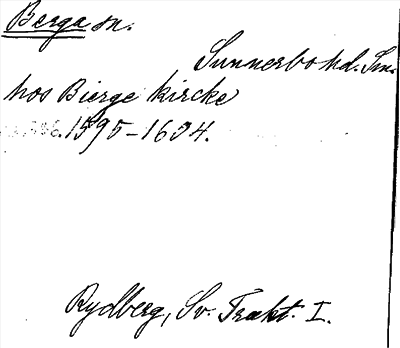 Berga sn.
Sunnerbo hd. Sm.
hos Bierge kircke
1595-1634.
Rydberg, Sv. Trakt. I.